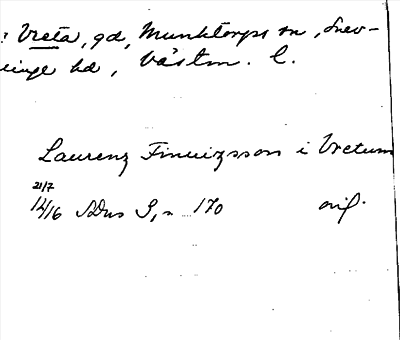 : Vreta, gd, Munktorps sn, Snev-
inge hd, Västm. l.
Laurenz Finuizsson i Vretum
21/7
1416 SDns 3, n 170 orig.